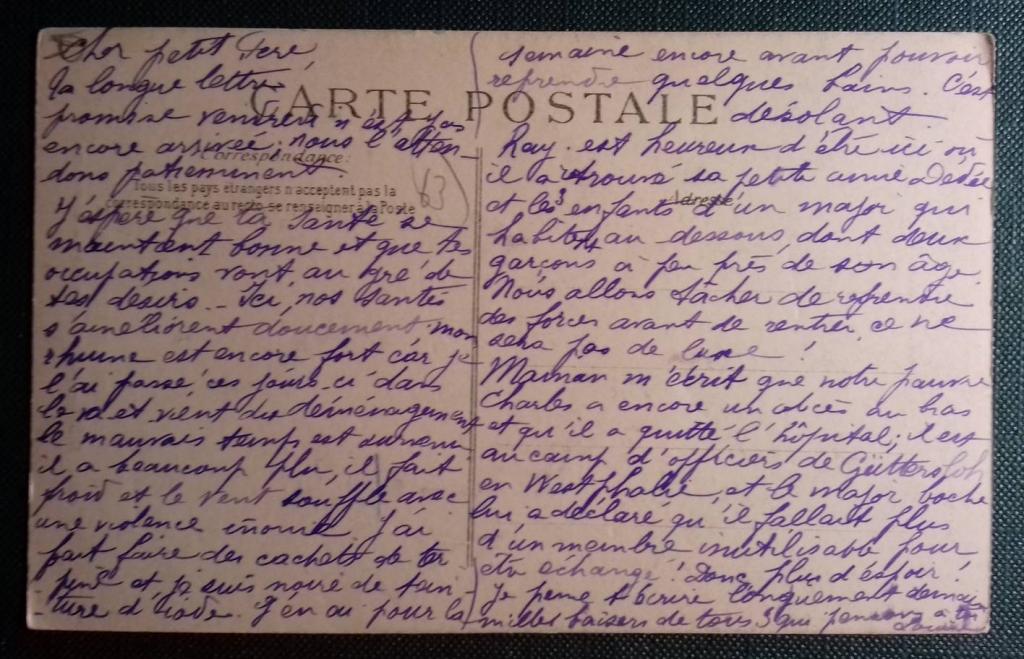 Cher petit Père,
Ta longue lettre
promise vendredi n'est pas
encore arrivée; nous l'atten-
dons patiemment.
J'espère que ta santé se
maintient bonne et que tes
occupations vont au gré de
tes désirs. Ici, nos santés
s'améliorent doucement. mon
rhume est encore fort car je
l'ai passé ces jours-ci dans
le va et vient du déménagement
le mauvais temps est survenu
il a beaucoup plu, il fait
froid et le vent souffle avec
une violence inouïe. J'ai
fait faire des cachets de
et je suis noire de tein-
ture d'iode. J'en ai pour la
CARTE POSTALE
Correspondance:
Tous les pays étrangers n'acceptent pas la
correspondance au recto se renseigner à la Poste
63
Adresse
semaine encore avant pouvoir
reprendre quelques bains. C'est
désolant
Ray est heureux d'être ici où
il a retrouvé sa petite amie Dédée
et les 3 enfants d'un major qui
habitent au dessous, dont deux
garçons à peu près de son âge
Nous allons tâcher de reprendre
des forces avant de rentrer, ce ne
sera pas de luxe!
Maman m'écrit que notre pauvre
Charles a encore un abcès au bras
et qu'il a quitté l'hôpital; il est
au camp d'officiers de Güttersloh
en Westphalie, et le major boche
lui a déclaré qu'il fallait plus
d'un membre inutilisable pour
être échangé! Donc plus d'espoir!
Je pense t'écrire longuement demain
milles baisers de tous 3 qui pensons à toi